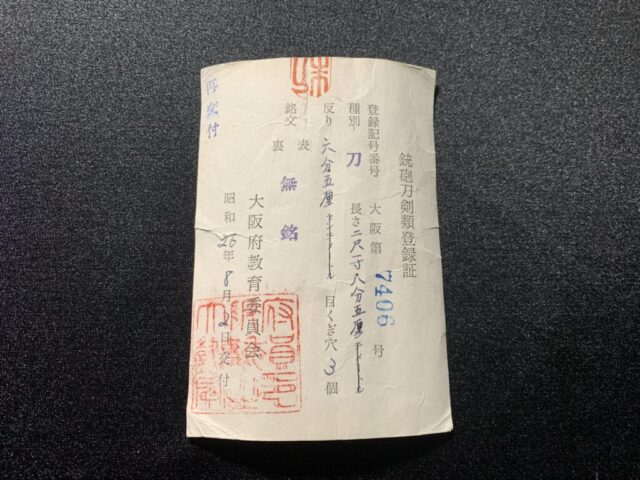 銃砲刀剣類登録証
登録記号番号 大阪第 7406 号
種別 刀 長さ 二尺一寸八分五厘 センチメートル
反り 六分五厘 センチメートル 目くぎ穴 3 個
銘文 表
裏 無銘
大阪府教育委員会
昭和26年8月2日交付
再交付